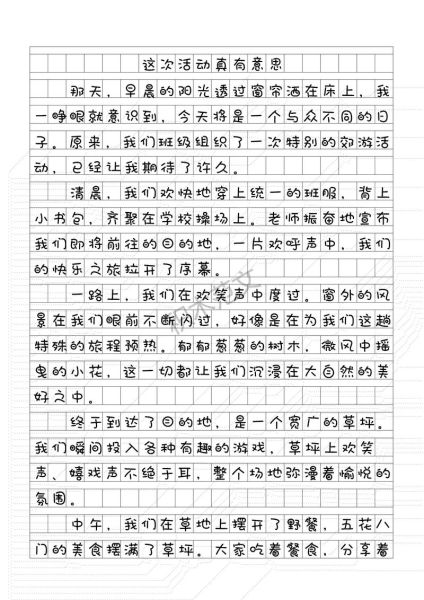 这次活动真有意思
那天，早晨的阳光透过窗帘洒在床上，我
一睁眼就意识到，今天将是一个与众不同的日
子。原来，我们班级组织了一次特别的郊游活
动，已经让我期待了许久。
清晨，我们欢快地穿上统一的班服，背上
小书包，齐聚在学校操场上。老师振奋地宣布
我们即将前往的目的地，一片欢呼声中，我们
的快乐之旅拉开了序幕。
一路上，我们在欢笑声中度过。窗外的风
景在我们眼前不断闪过，好像是在为我们这趟
特殊的旅程预热。郁郁葱葱的树木，微风中摇
曳的小花，这一切都让我们沉浸在大自然的美
好之中。
终于到达了目的地，是一个宽广的草坪。
我们瞬间投入各种有趣的游戏，草坪上欢笑
声、嬉戏声不绝于耳，整个场地弥漫着愉悦的
氛围。
中午，我们在草地上摆开了野餐，五花八
门的美食摆满了草坪。大家吃着餐食，分享着